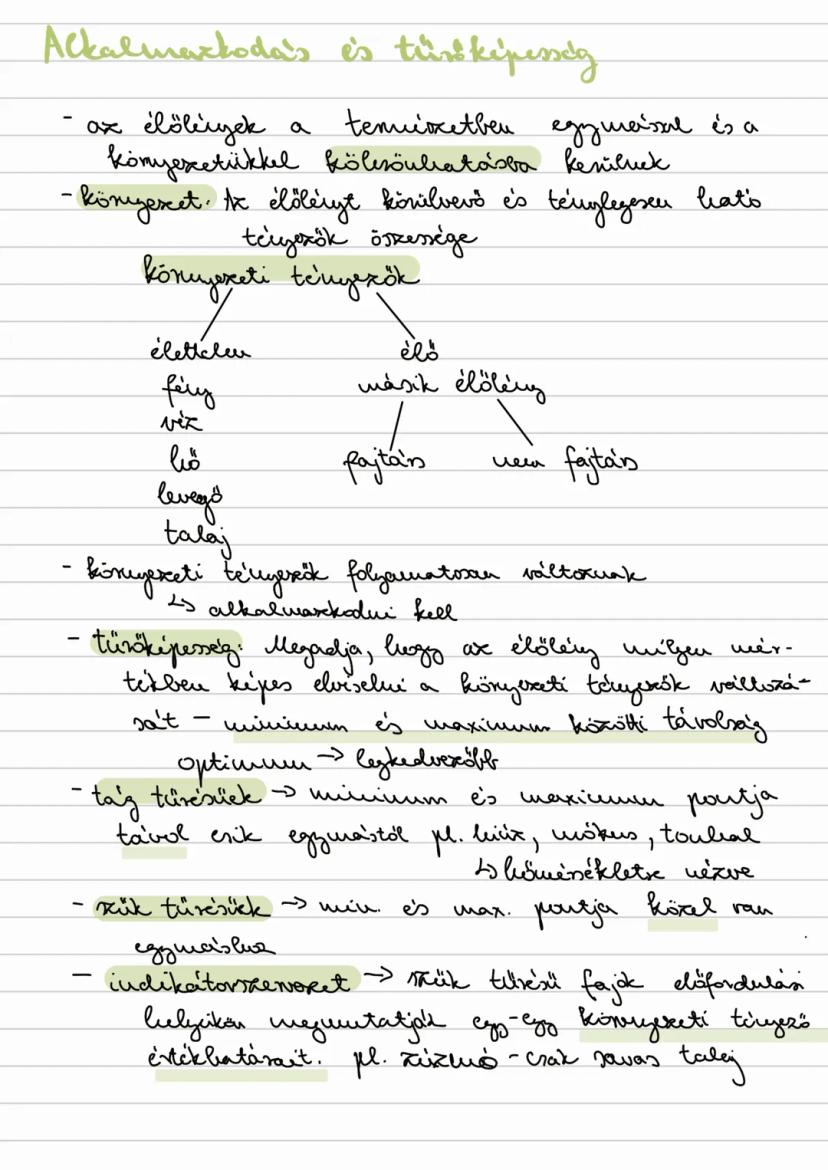 Alkalmazkodás és tűrőképesség
- az élőlények a természetben egymással és a
környezetükkel kölcsönhatásba kerülnek
- környezet: Az élőlényt körülvevő és ténylegesen ható
tényezők összessége
környezeti tényezők
élettelen élő
fény másik élőlény
víz
hő fajtárs nem fajtárs
levegő
talaj
- környezeti tényezők folyamatosan változnak
↳ alkalmazkodni kell
- tűrőképesség: Megadja, hogy az élőlény milyen mér-
tékben képes elviselni a környezeti tényezők változá-
sát – minimum és maximum közötti távolság
optimum → legkedvezőbb
- tág tűrésűek → minimum és maximum pontja
távol esik egymástól pl. hiúz, mókus, tonhal
↳ hőmérsékletre nézve
- szűk tűrésűek → min. és max. pontja közel van
egymáshoz
- indikátorszervezet → szűk tűrésű fajok előfordulási
helyükön megmutatják egy-egy környezeti tényező
értékhatárait. pl. zúzmó - csak savas talaj